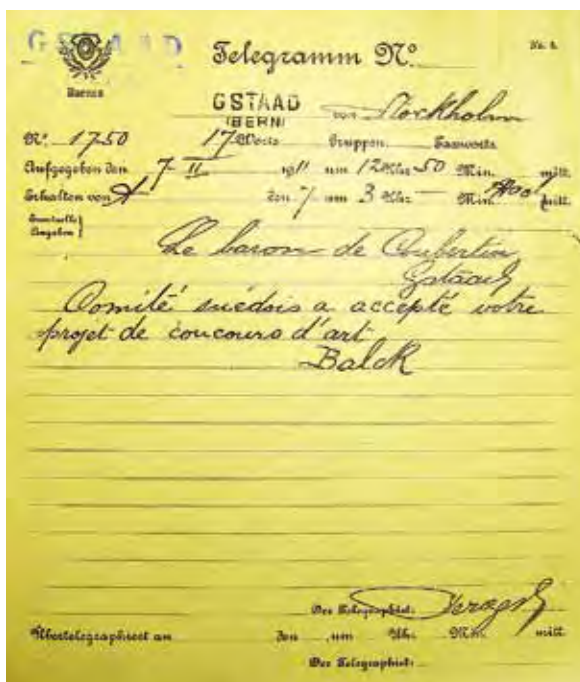 GSTAAD
Telegramm Nº
No. 4.
Berner
GSTAAD
(BERN)
von Stockholm
Nº. 1750 17 Worte Gruppen Taxworte
Aufgegeben den 7 II 1911 um 12 Uhr 50 Min. mitt.
Erhalten von den 7 um 3 Uhr — Min. mitt.
Eventuelle
Angaben
Le baron de Coubertin
Gstaad
Comité suédois a accepté votre
projet de concours d'art
Balck
Der Telegraphist:
Übertelegraphiert an den um Uhr Min. mitt.
Der Telegraphist: